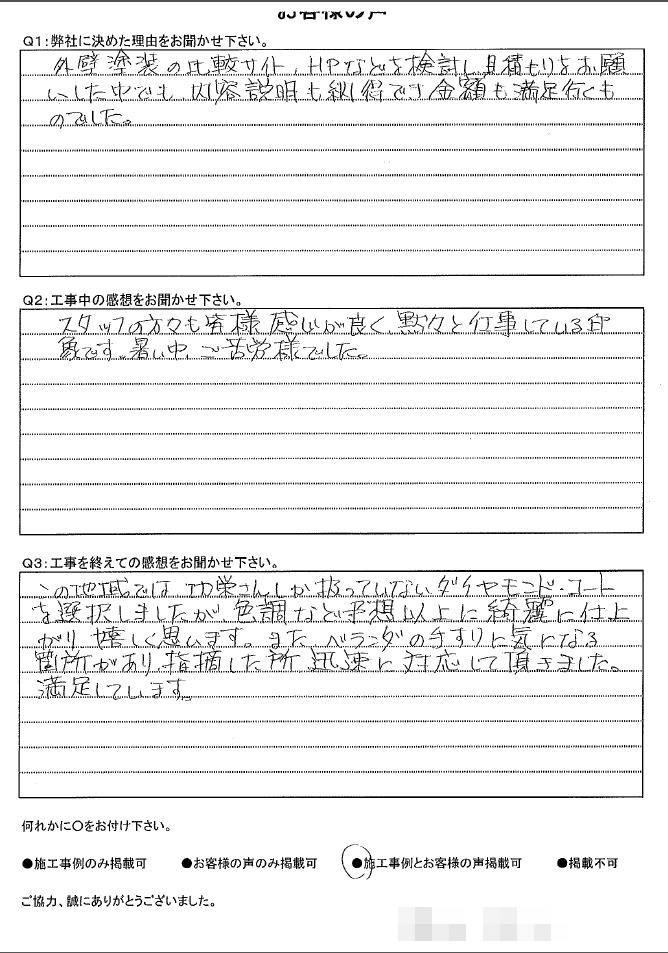 お客様の声
Q1：弊社に決めた理由をお聞かせ下さい。
外壁塗装の比較サイト、HPなどを検討し見積もりをお願
いした中でも、内容説明も納得でき金額も満足行くも
のでした。
Q2：工事中の感想をお聞かせ下さい。
スタッフの方々も皆様感じが良く、黙々と仕事している印
象です。暑い中、ご苦労様でした。
Q3：工事を終えての感想をお聞かせ下さい。
この地域では功栄さんしか扱っていないダイヤモンド・コート
を選択しましたが色調など予想以上に綺麗に仕上
がり嬉しく思います。また、ベランダの手すりに気になる
箇所があり、指摘した所迅速に対応して頂きました。
満足しています。
何れかに〇をお付け下さい。
●施工事例のみ掲載可 ●お客様の声のみ掲載可 ●施工事例とお客様の声掲載可 ●掲載不可
ご協力、誠にありがとうございました。